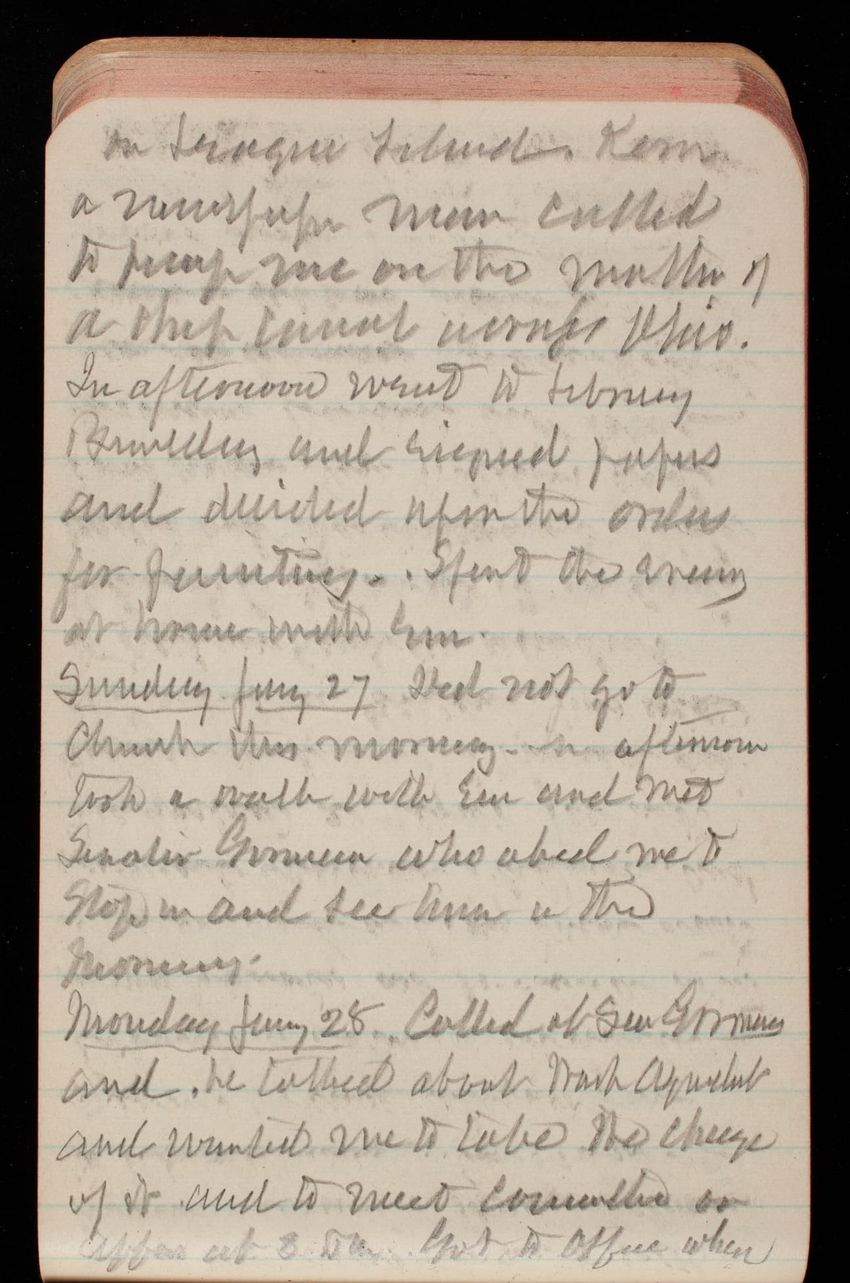 on League Island. Kern
a newspaper man called
to pump me on the matter of
a ship canal across Ohio.
In afternoon went to Library
Building and signed papers
and decided upon the orders
for furniture. Spent the evening
at home with Em.
Sunday Jany 27 Did not go to
Church this morning. In afternoon
Took a walk with Em and met
Senator Gorman who asked me to
Stop in and see him in the
Morning.
Monday Jany 28. Called at Sen Gormans
and he talked about Wash Aqueduct
and wanted me to take the charge
of it and to meet Committee on
at 3 Got to Office when